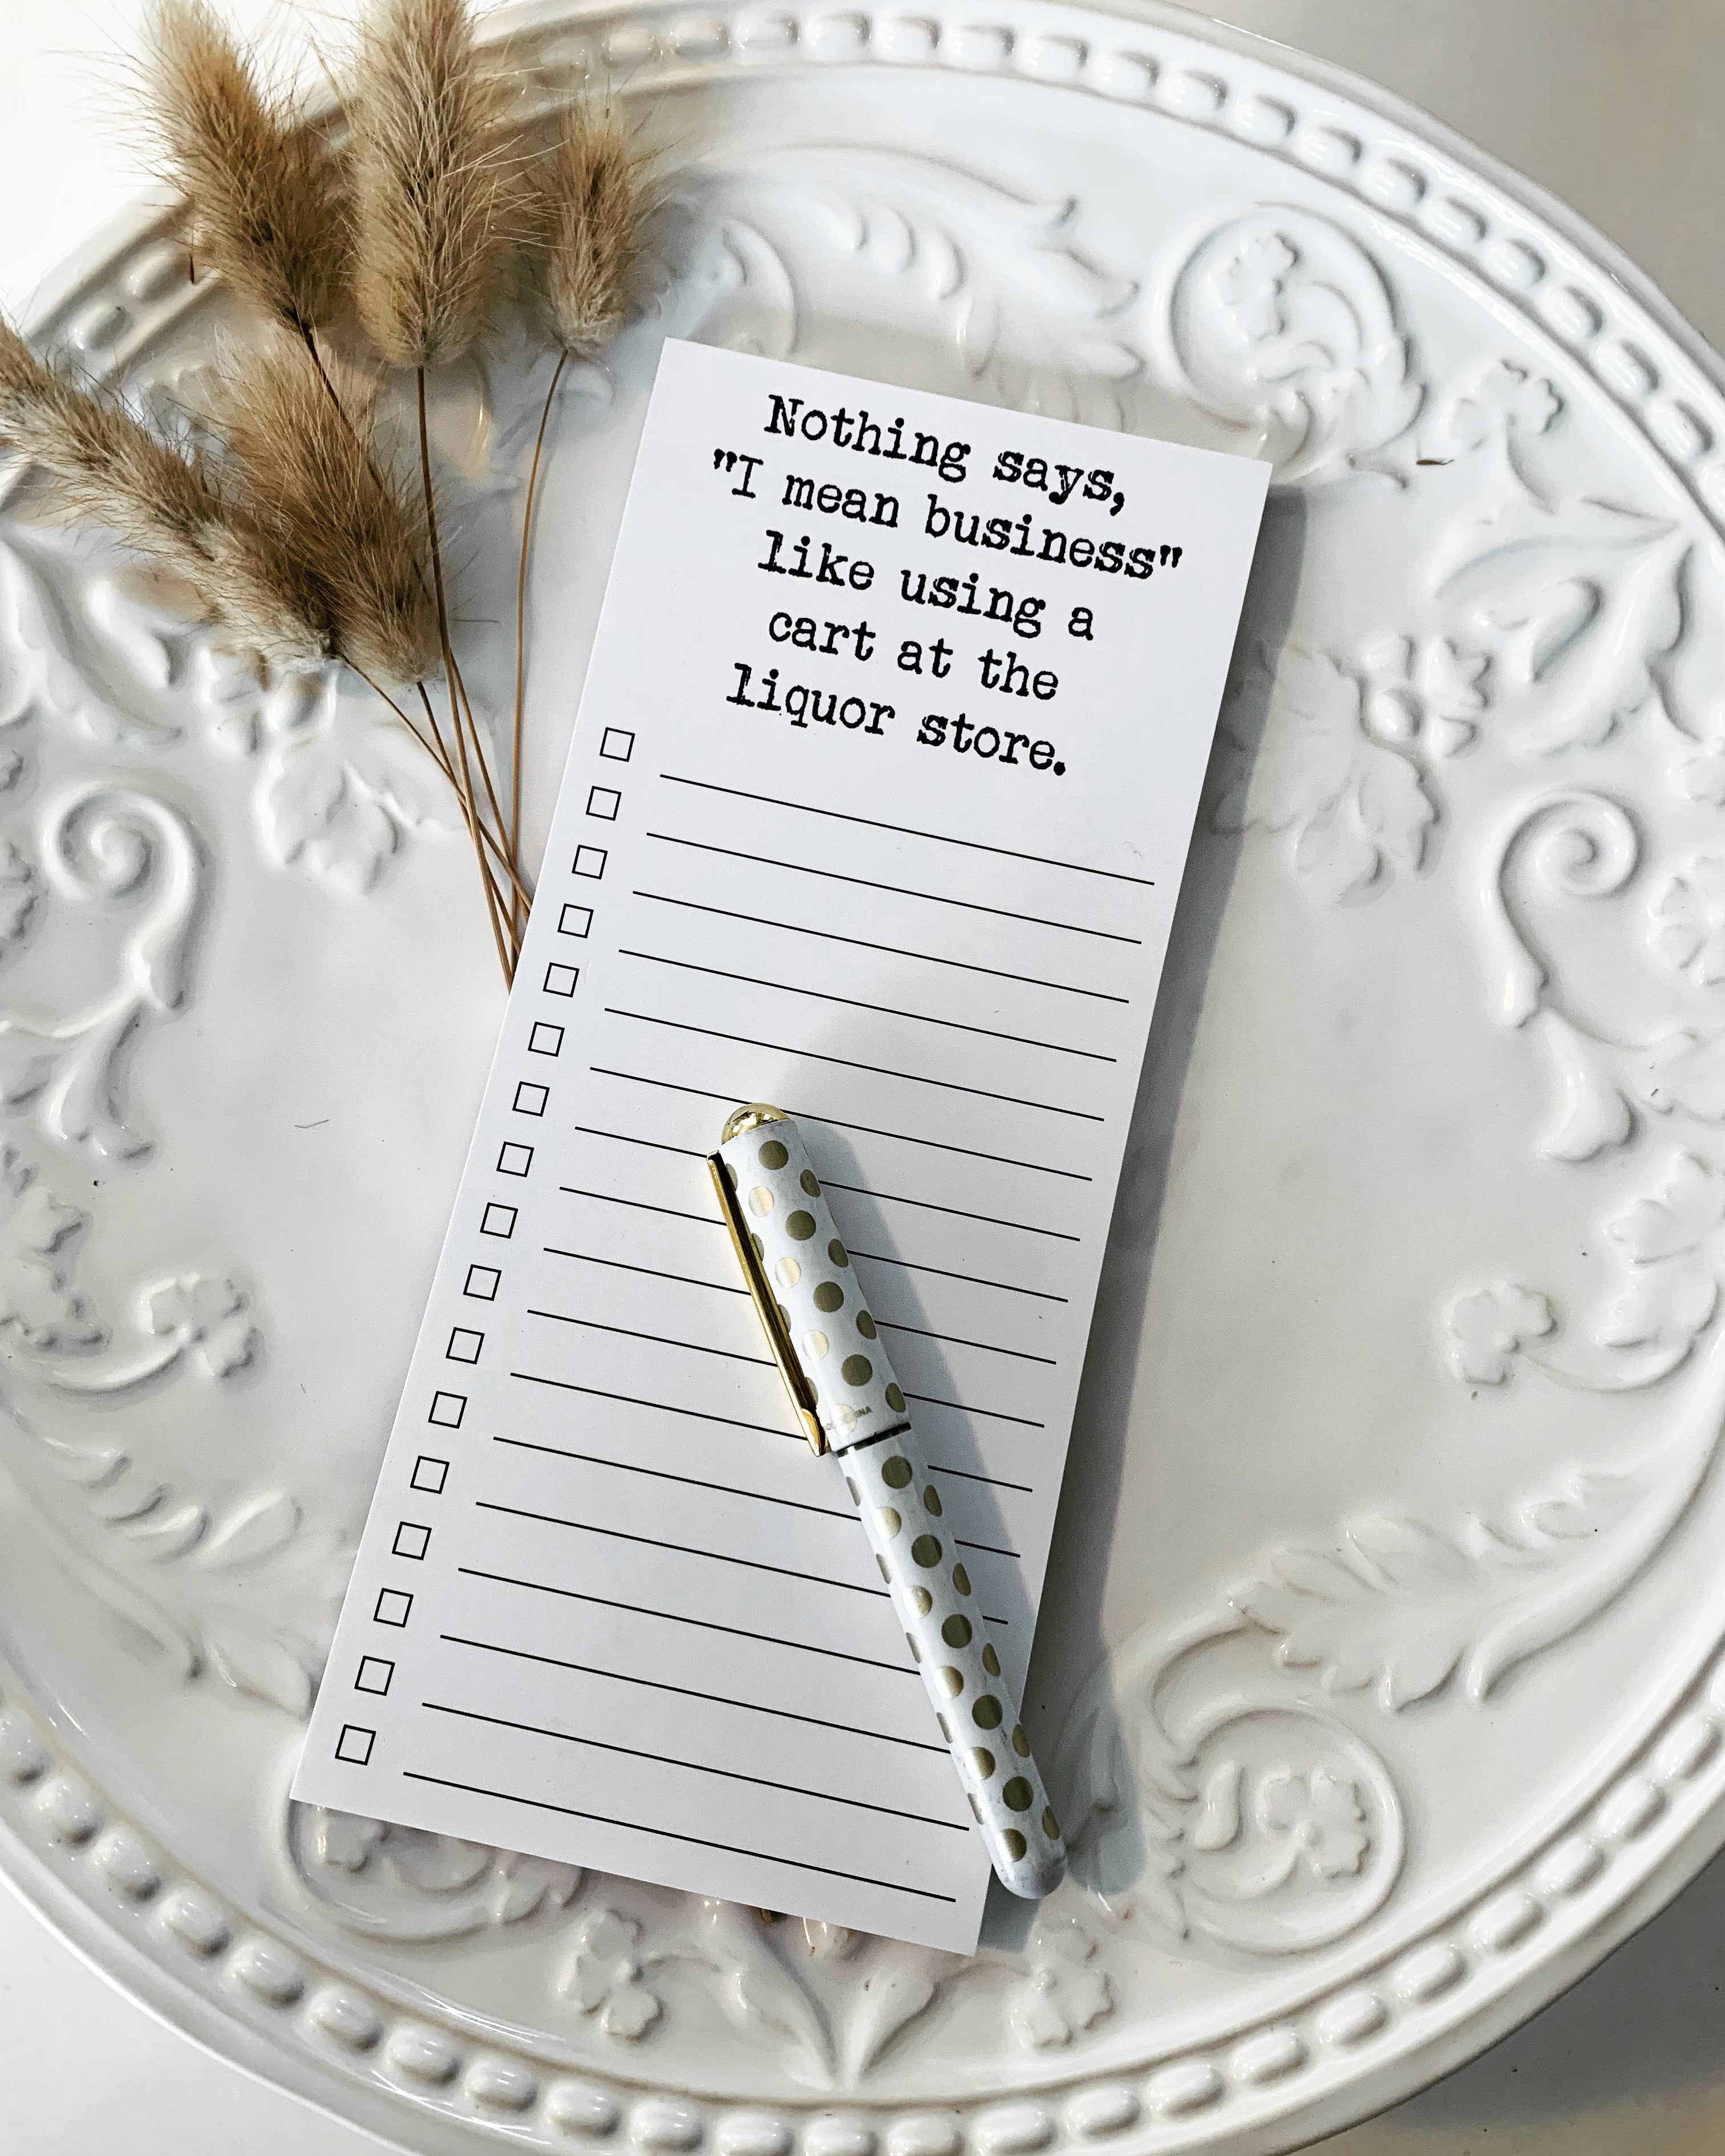 Nothing says,
"I mean business"
like using a
cart at the
liquor store.